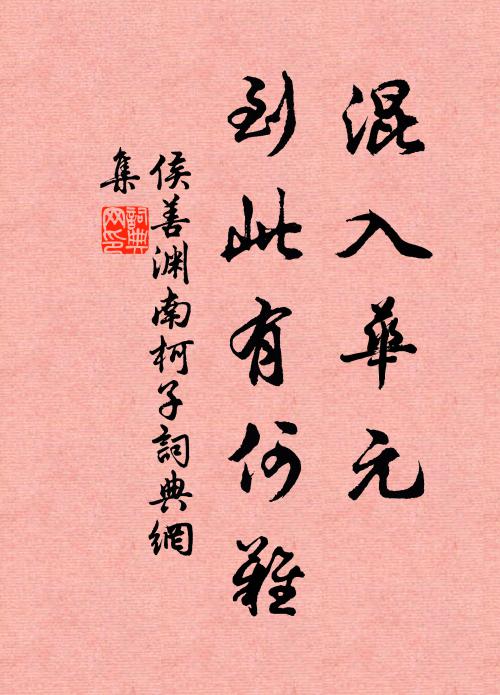 混入華元
到此有何難
侯善渊南柯子詞典網
集
詞典網印